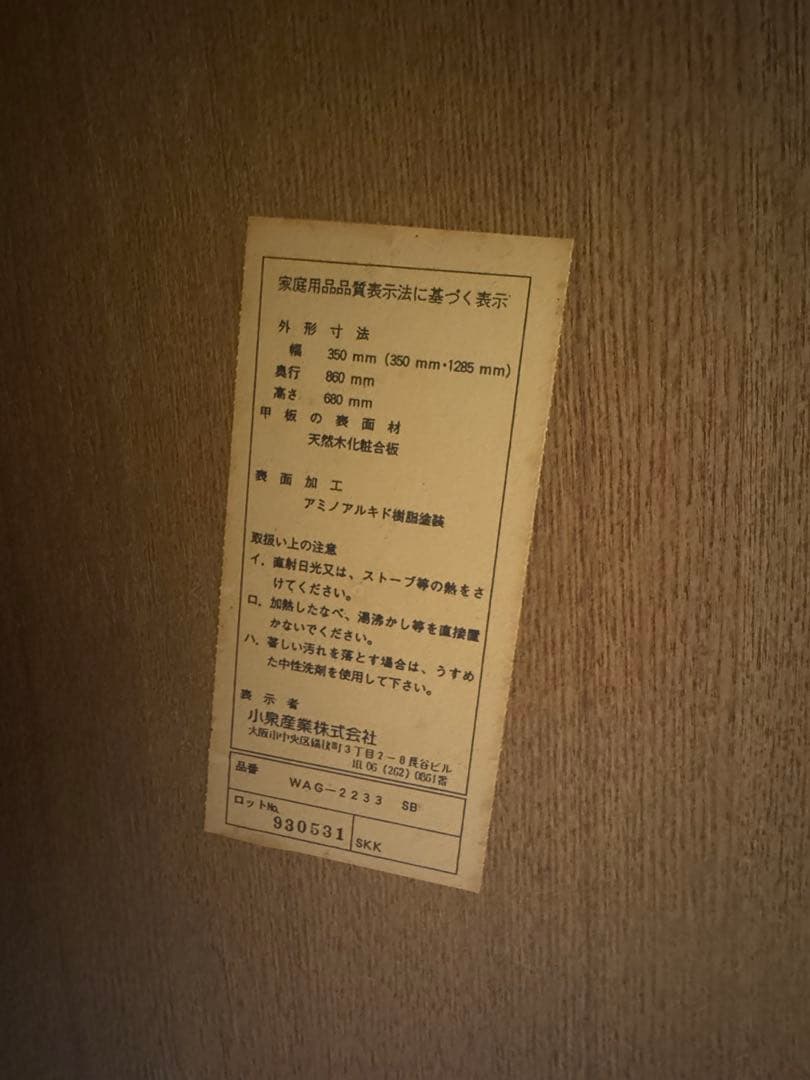 家庭用品品質表示法に基づく表示
外形寸法
幅 350 mm (350 mm・1285 mm)
奥行 860 mm
高さ 680 mm
甲板の表面材
天然木化粧合板
表面加工
アミノアルキド樹脂塗装
取扱い上の注意
イ. 直射日光又は、ストーブ等の熱をさ
けてください。
ロ. 加熱したなべ、湯沸かし等を直接置
かないでください。
ハ. 著しい汚れを落とす場合は、うすめ
た中性洗剤を使用して下さい。
表示者
小泉産業株式会社
大阪市中央区備後町3丁目2-8長谷ビル
TEL 06 (262) 0861番
品番 WAG-2233 SB
ロットNo. 930531 SKK